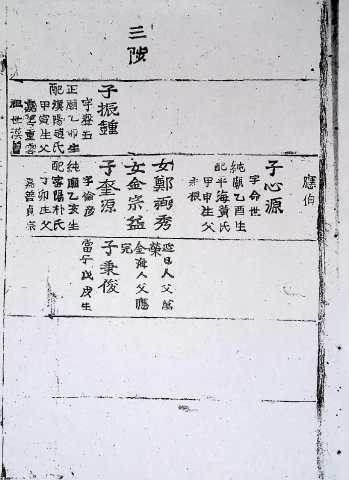 三陟
應伯
子振鍾
字聲五
正廟乙卯生
配漢陽趙氏
甲寅生父
祖世漢
子心源
字命世
純廟乙酉生
配平海黃氏
甲申生父
女鄭秀
女金宗益
子奎源
字倫彦
純廟乙亥生
配密陽朴氏
丁卯生父
嘉善貞宗
迎日人父萬
榮
金海人父應
完
子秉俊
當宁戊戌生